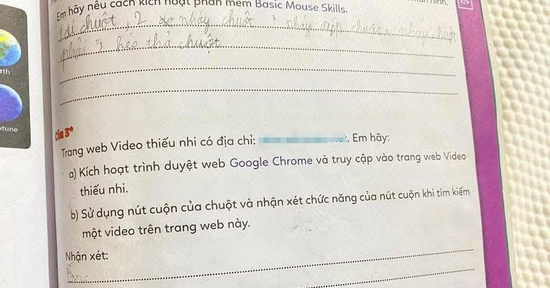 Em hãy nêu cách kích hoạt phần mềm Basic Mouse Skills.
chuột, 2 nháy chuột nháy chuột nháy chuột
phải 5 kéo thả chuột
rth
tune
Câu 3*
Trang web Video thiếu nhi có địa chỉ: . Em hãy:
a) Kích hoạt trình duyệt web Google Chrome và truy cập vào trang web Video
thiếu nhi.
b) Sử dụng nút cuộn của chuột và nhận xét chức năng của nút cuộn khi tìm kiếm
một video trên trang web này.
Nhận xét: